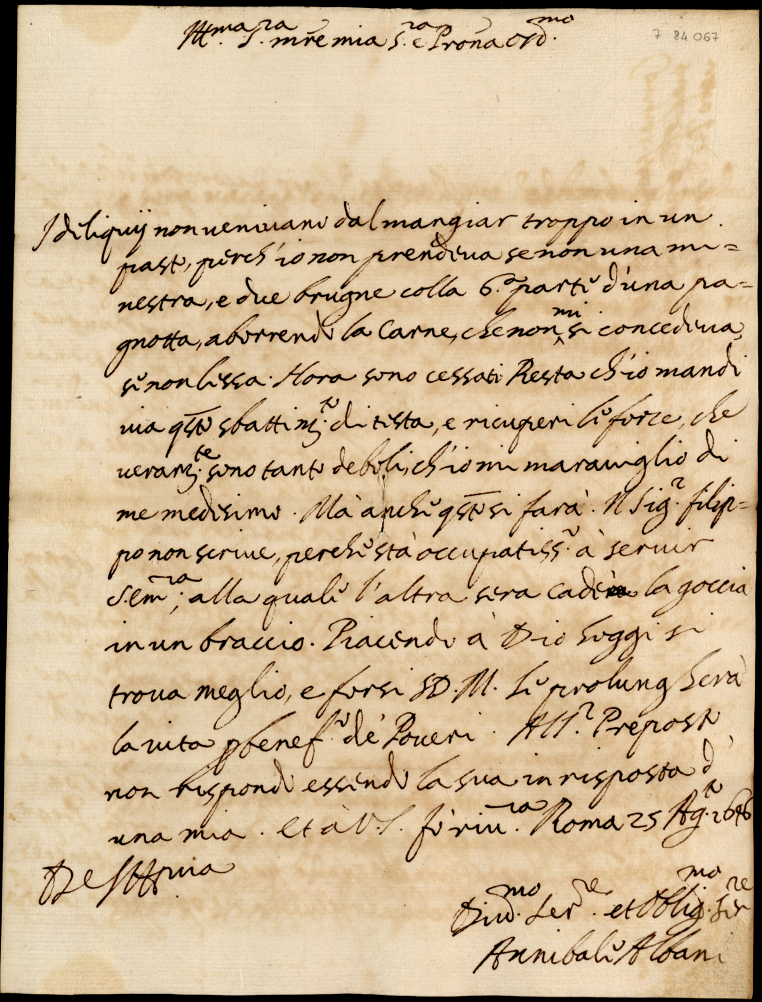 Ill.ma S.ra mre mia S.ra e Prona Oss.mo
7 84 067
I deliquij non venivano dal mangiar troppo in un
pasto, perch'io non prendeva se non una mi=
nestra, e due brugne colla 6.a parte d'una pa=
gnotta, aborrendo la Carne, che non mi si concedeva,
se non lissa. Hora sono cessati. Resta ch'io mandi
via qsto sbattim.to di testa, e ricuperi le forze, che
veram.te sono tanto deboli, ch'io mi maraviglio di
me medesimo. Mà anche qsto si farà. Il Sig.r Filip=
po non scrive, perche stà occupatiss.o à servir
S. Em.za; alla quale l'altra sera cade la goccia
in un braccio. Piacendo à Dio hoggi si
trova meglio, e forsi S.D.M. le prolungherà
la vita p benef.o de' Poveri. All.r Preposto
non rispondo essendo la sua in risposta d'
una mia. Et à V.S. fò riv.za Roma 25 Ag.to 1646
De S. Ill.ma
Div.mo Ser.re et Oblig.mo
Annibale Albani